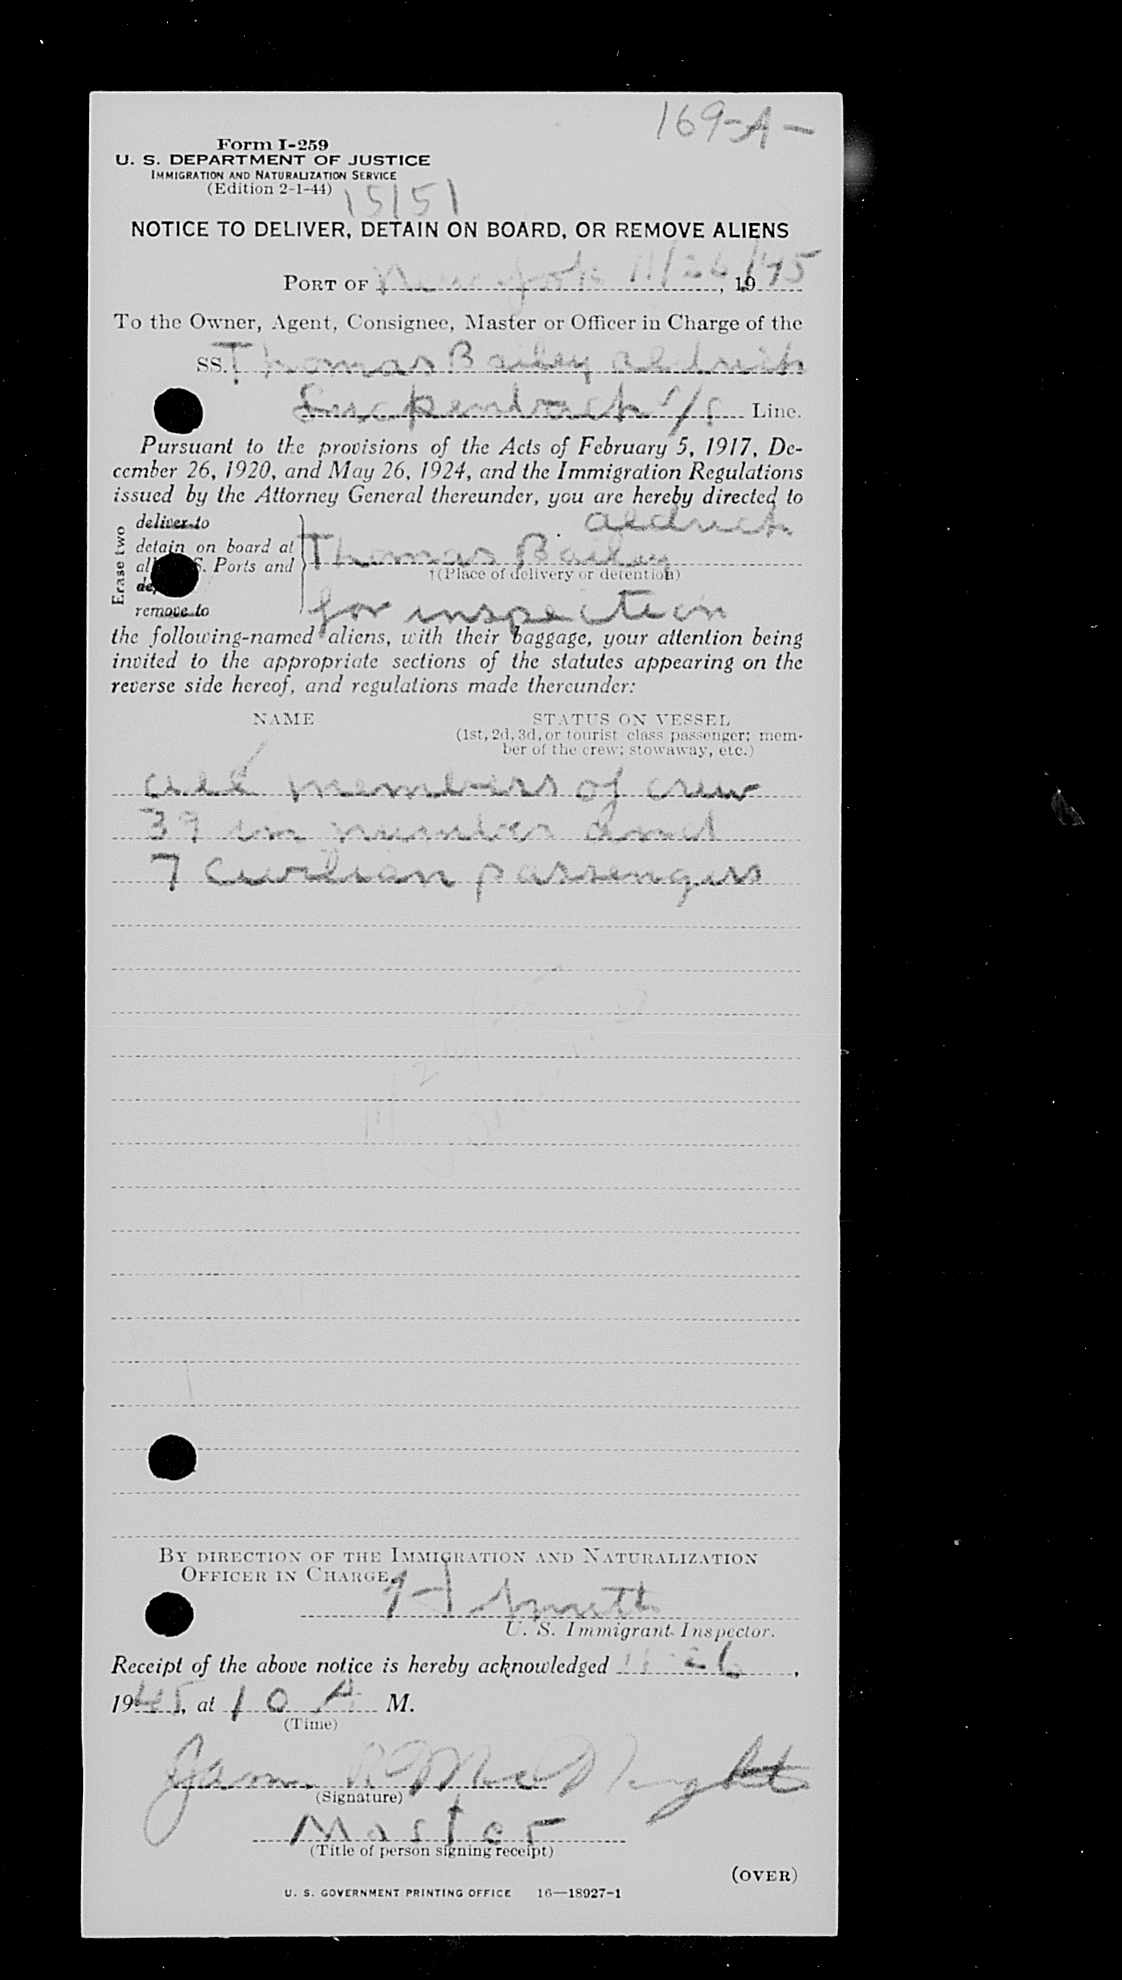 169-A-
Form I-259
U. S. DEPARTMENT OF JUSTICE
IMMIGRATION AND NATURALIZATION SERVICE
(Edition 2-1-44)
15151
NOTICE TO DELIVER, DETAIN ON BOARD, OR REMOVE ALIENS
PORT OF New York 11/26/, 1945
To the Owner, Agent, Consignee, Master or Officer in Charge of the
SS. Thomas Bailey Aldrich
Line.
Pursuant to the provisions of the Acts of February 5, 1917, De-
cember 26, 1920, and May 26, 1924, and the Immigration Regulations
issued by the Attorney General thereunder, you are hereby directed to
Erase two
deliver to
aldrich
detain on board at
Thomas Bailey
S. Ports and
†(Place of delivery or detention)
remove to
for inspection
the following-named aliens, with their baggage, your attention being
invited to the appropriate sections of the statutes appearing on the
reverse side hereof, and regulations made thereunder:
NAME STATUS ON VESSEL
(1st, 2d, 3d, or tourist class passenger; mem-
ber of the crew; stowaway, etc.)
all members of crew
39 in number and
7 Civilian passengers
BY DIRECTION OF THE IMMIGRATION AND NATURALIZATION
OFFICER IN CHARGE,
Smith
U. S. Immigrant Inspector.
Receipt of the above notice is hereby acknowledged 11-26,
1945, at 10 A M.
(Time)
McNight
(Signature)
Master
(Title of person signing receipt)
(OVER)
U. S. GOVERNMENT PRINTING OFFICE 16—18927-1